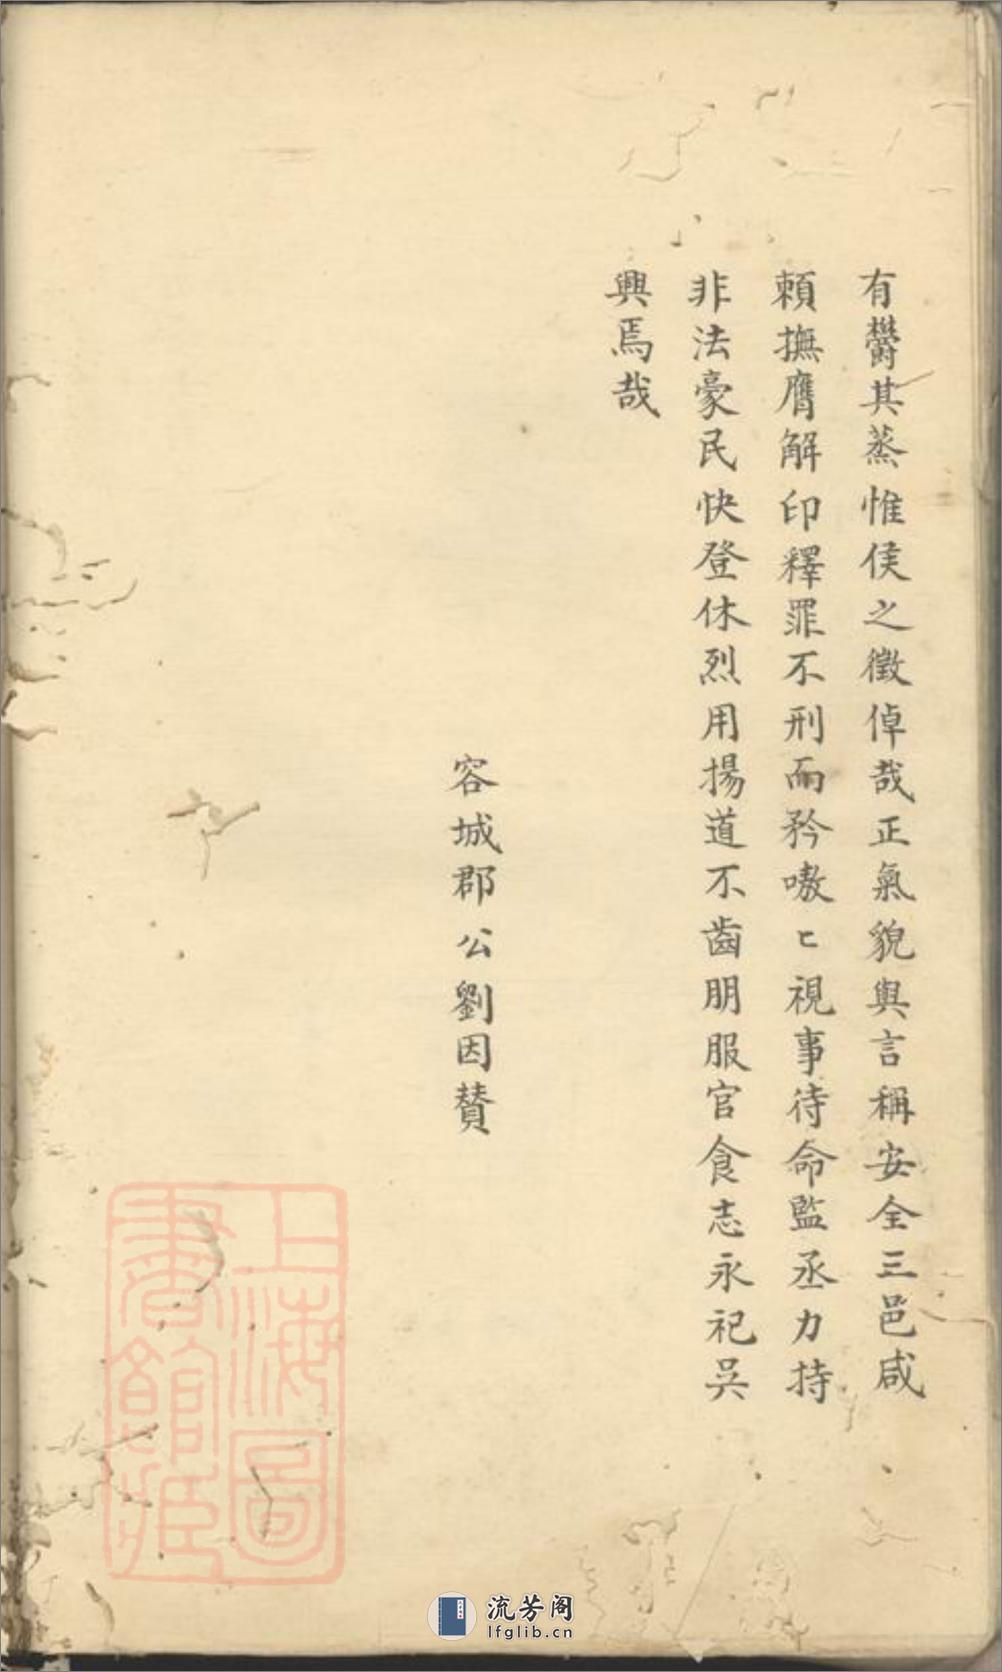 有鬱其蒸惟侯之徵倬哉正氣貌與言稱安全三邑咸
頼撫膺解印釋罪不刑而矜嗷〻視事待命監丞力持
非法豪民快登休烈用揚道不齒朋服官食志永祀吳
興焉哉
容城郡公劉因賛
上海圖
書館藏
流芳阁
lfglib.cn